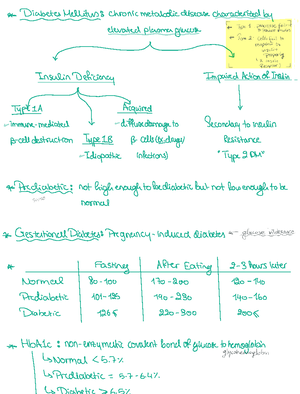 * Diabetes Mellitus: chronic metabolic disease characterized by
elevated plasma glucose
Insulin Deficiency
Impaired Action of Insulin
Type 1A
- immune-mediated
β-cell destruction
Type 1B
- Idiopathic
Acquired
- diffuse damage to
β-cells (ex. surgery/
infections)
Secondary to insulin
Resistance
"Type 2 DM"
* Prediabetic: not high enough to be diabetic but not low enough to be
normal
* Gestational Diabetes: Pregnancy-induced diabetes - glucose intolerance
* Fasting After Eating 2-3 hours later
Normal 80-100 170-200 120-140
Prediabetic 101-125 190-230 140-160
Diabetic 126≤ 220-300 200≤
* HbA1c: non-enzymatic covalent bond of glucose to hemoglobin
glycohemoglobin
↳ Normal <5.7%
↳ Prediabetic = 5.7-6.4%
↳ Diabetic >6.5%